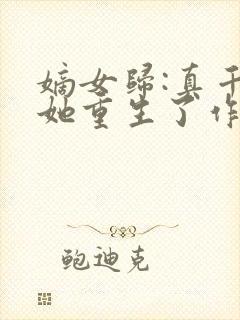 嫡女归:真千
她重生了作
鲍迪克